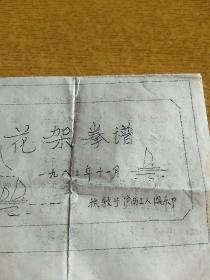 花架拳谱
一九八三年十一月
执教于沪西工人俱乐部